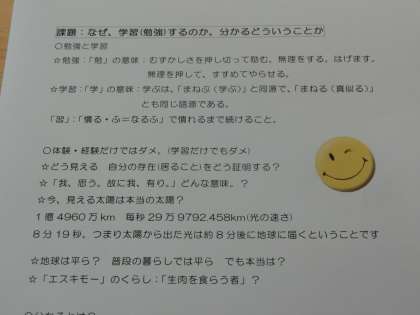 課題：なぜ、学習(勉強)するのか、分かるどういうことか
○勉強と学習
☆勉強：「勉」の意味：むずかしさを押し切って励む。無理をする。はげます。
無理を押して、すすめてやらせる。
☆学習：「学」の意味：学ぶは、「まねぶ（学ぶ）」と同源で、「まねる（真似る）」
とも同じ語源である。
「習」：「慣る・ふ＝なるふ」で慣れるまで続けること。
○体験・経験だけではダメ。（学習だけでもダメ）
☆どう見える　自分の存在(居ること)をどう証明する？
☆「我、思う。故に我、有り。」どんな意味。？
☆今、見える太陽は本当の太陽？
1億4960万km　毎秒29万9792.458km(光の速さ)
8分19秒、つまり太陽から出た光は約8分後に地球に届くということです
☆地球は平ら？　普段の暮らしでは平ら　でも本当は？
☆「エスキモー」のくらし：「生肉を食らう者」？